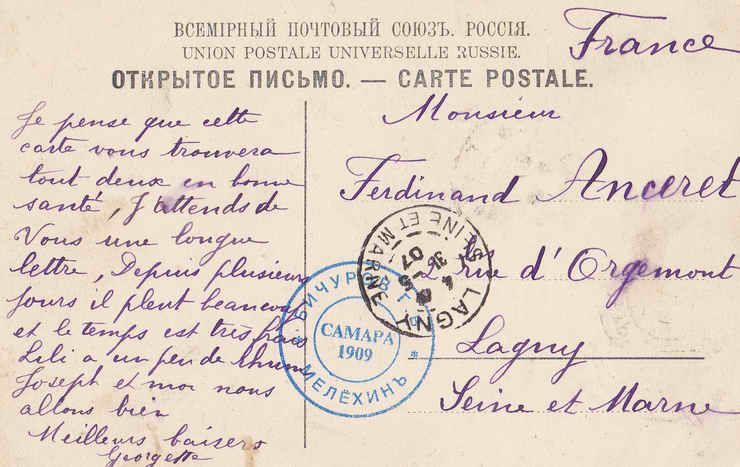 ВСЕМІРНЫЙ ПОЧТОВЫЙ СОЮЗЪ. РОССІЯ.
UNION POSTALE UNIVERSELLE RUSSIE.
ОТКРЫТОЕ ПИСЬМО. — CARTE POSTALE.
France
Je pense que cette
carte vous trouvera
tout deux en bonne
santé, J'attends de
Vous une longue
lettre, Depuis plusieurs
jours il pleut beaucoup
et le temps est très frais
Lili a un peu de rhume
Joseph et moi nous
allons bien
Meilleurs baisers
Georgette
Monsieur
Ferdinand Anceret
2 rue d'Orgemont
Lagny
Seine et Marne
LAGNY
SEINE ET MARNE
07
БИЧУРОВ
САМАРА
1909
МЕЛЁХИНЪ